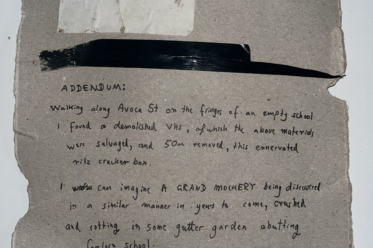 ADDENDUM:
Walking along Avoca St on the fringes of an empty school
I found a demolished VHS, of which the above materials
were salvaged, and 50m removed, this enervated
ritz cracker box.
I can imagine A GRAND MOCKERY being discovered
in a similar manner in years to come, crushed
and rotting in some gutter garden abutting
school.